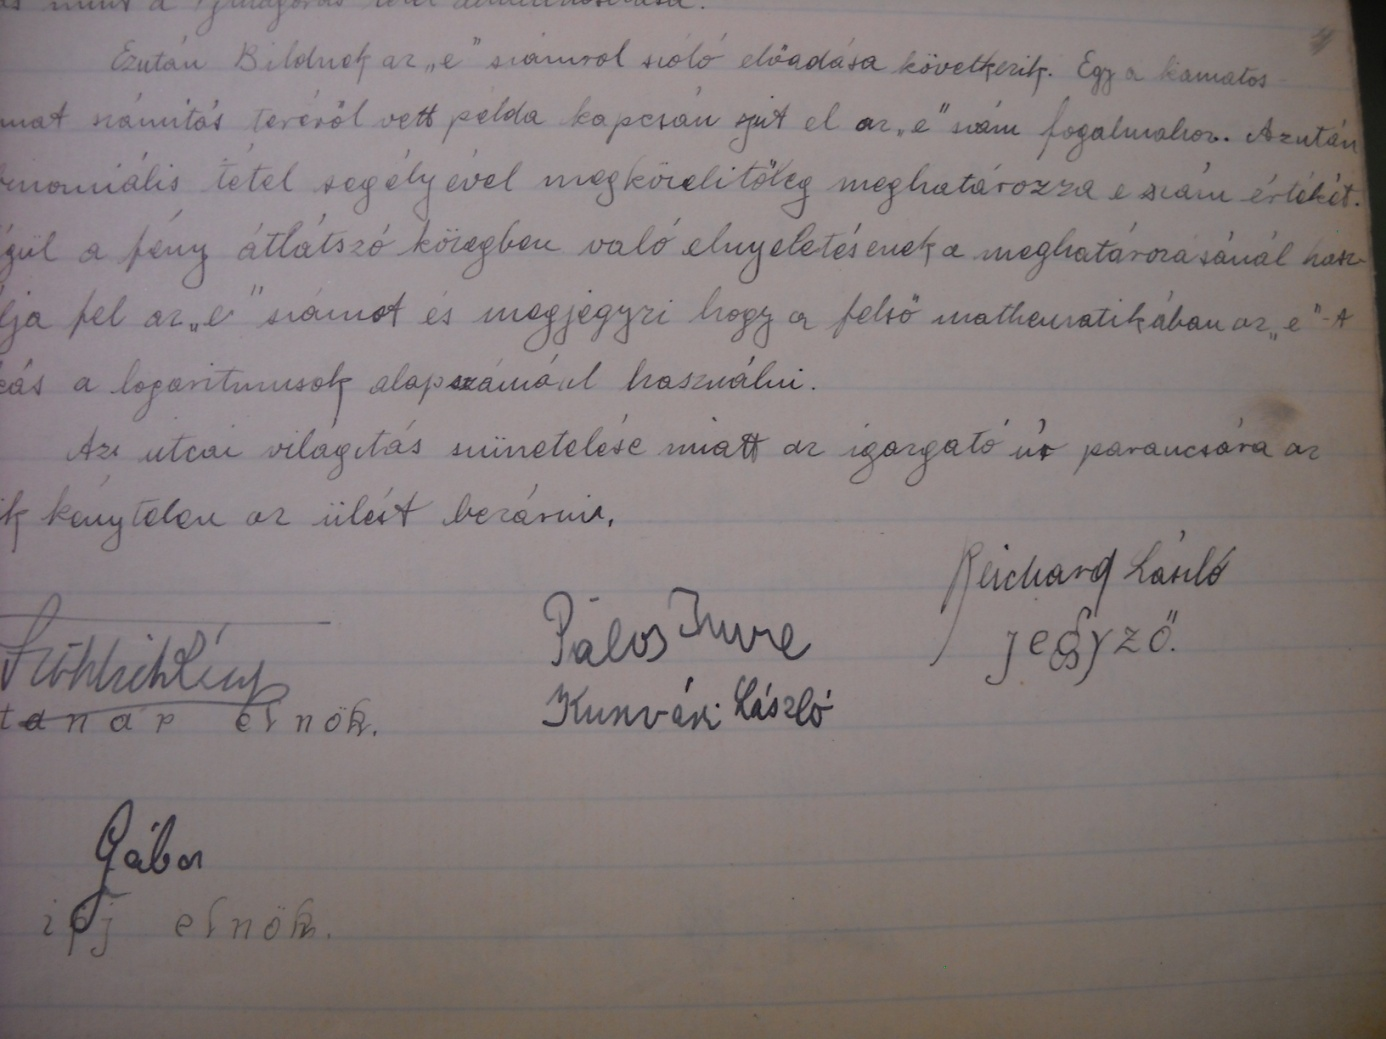 mint a
Ezután Bildnek az „e" számról szóló előadása következik. Egy a kamatos-
mat számitás teréről vett példa kapcsán jut el az „e" szám fogalmához. Azután
binomiális tétel segélyével megközelitőleg meghatározza e szám értékét.
gül a fény átlátszó közegben való elnyeletésének a meghatározásánál hasz-
lja fel az „e" számot és megjegyzi hogy a felső mathematikában az „e"-t
kás a logaritmusok alapszámául használni.
Az utcai világitás szünetelése miatt az igazgató úr parancsára az
k kénytelen az ülést bezárni.
Reichard László
jegyző.
Pálos Imre
Fröhlich
tanár elnök.
László
Gábor
ifj elnök.